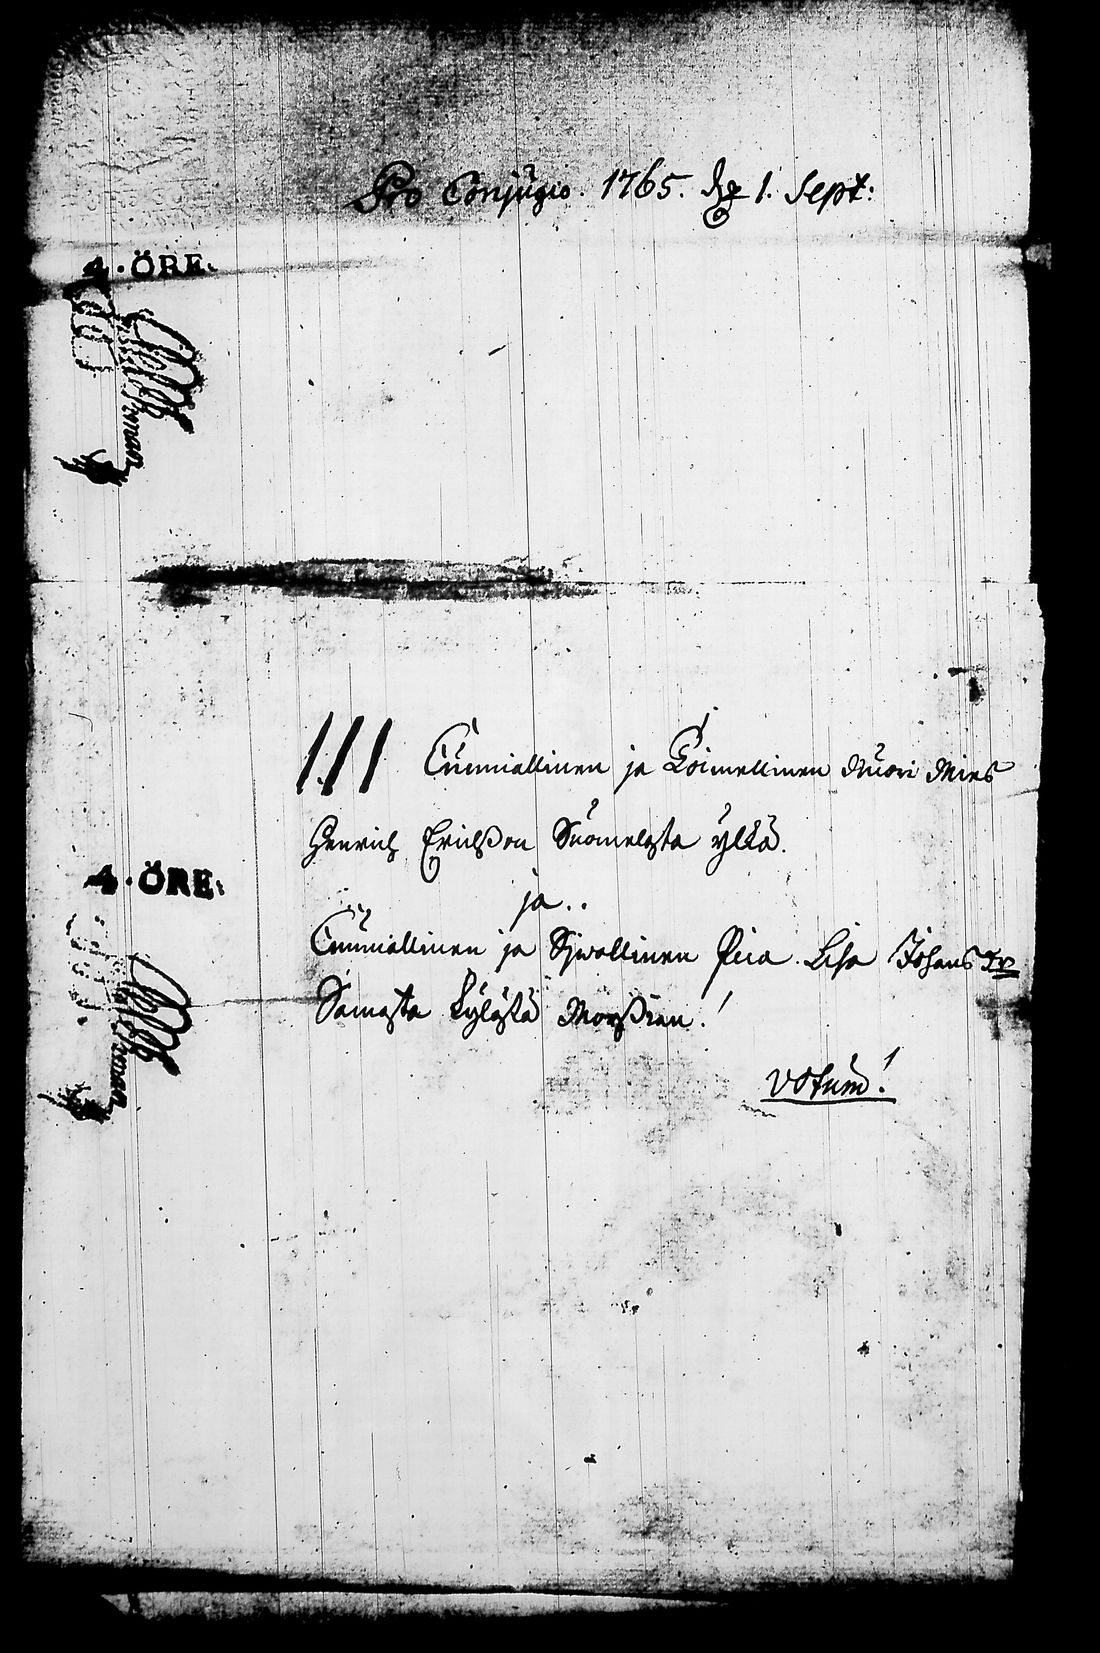 Pro Conjugio. 1765. d. 1. Sept:
4·ÖRE·
III Cunniallinen ja Toimellinen Nuori Mies
Henrich Ericßon Suomelasta ylkä.
4·ÖRE·
ja..
Cunniallinen ja Sijwollinen Pija Lisa Johans Dr
Samasta Kylästä Morßian!
Votum!